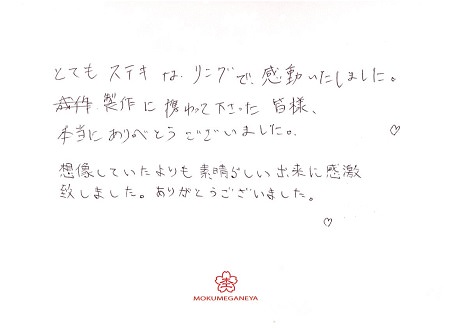 とても ステキ な リングで 感動いたしました。
製作に 携わって下さった 皆様、
本当に ありがとう ございました。 ♡
想像していたよりも 素晴らしい 出来に 感激
致しました。ありがとうございました。
♡
MOKUMEGANEYA